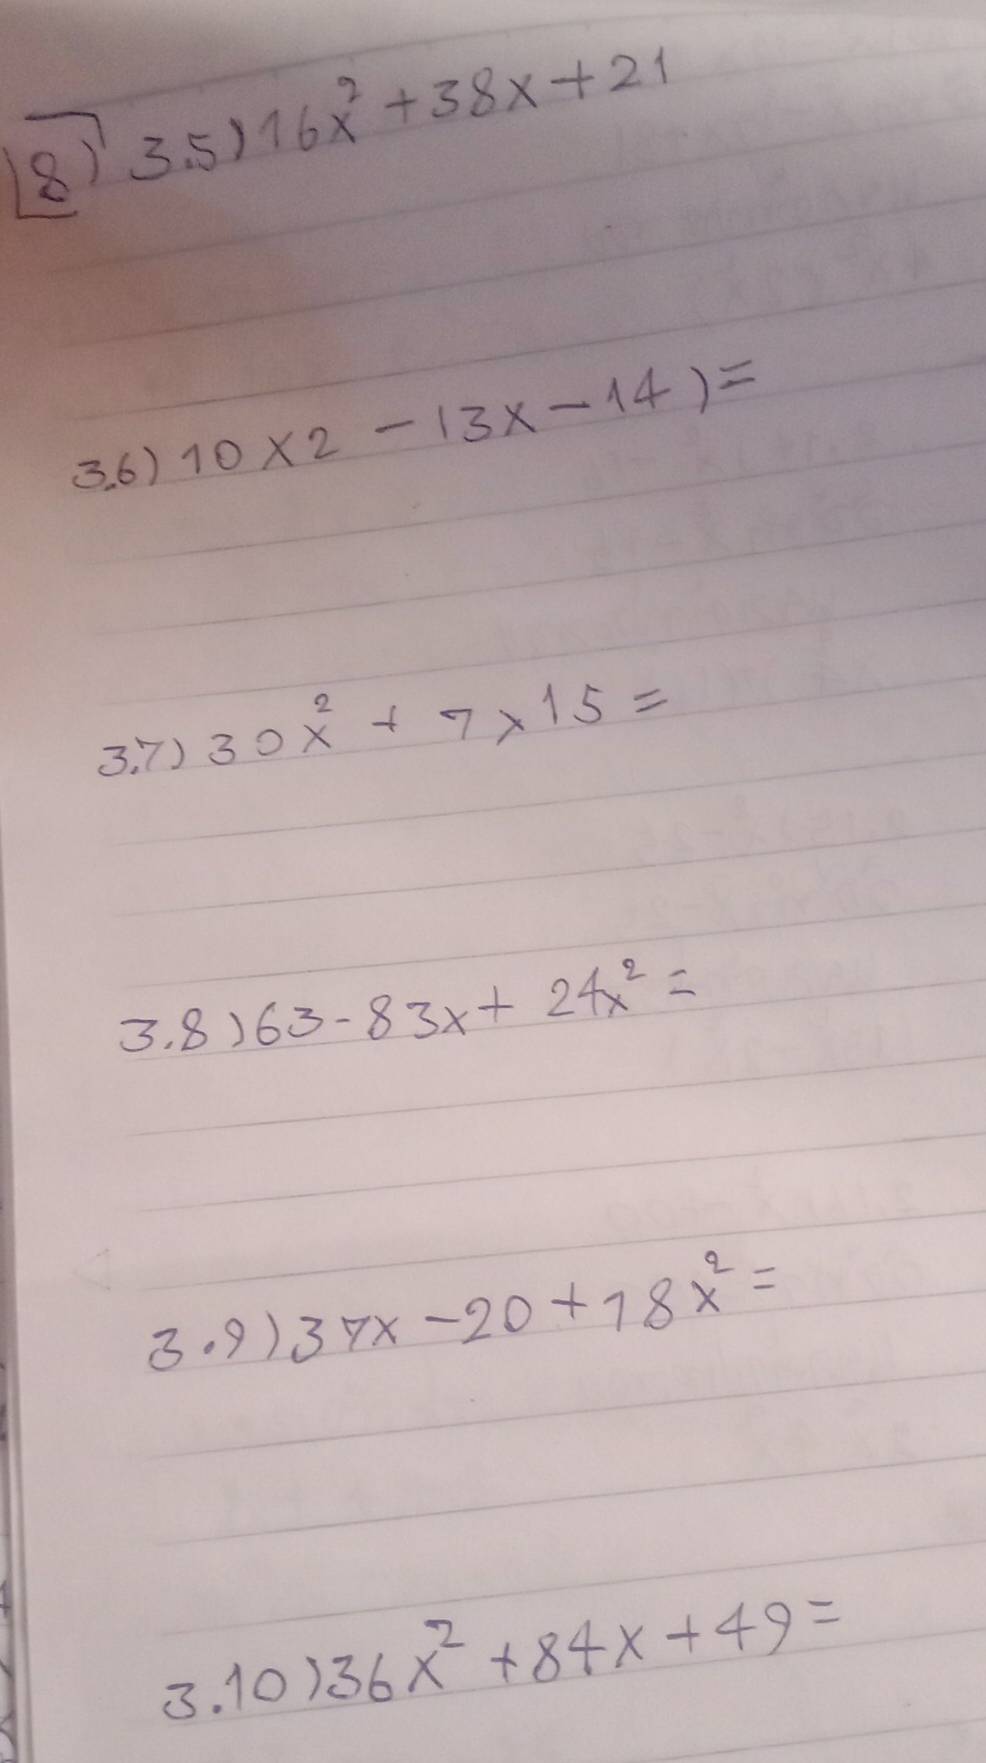 8) 3.5) 16x² + 38x + 21
3.6) 10x2 - 13x - 14) =
3.7) 30x² + 7x15 =
3.8) 63 - 83x + 24x² =
3.9) 37x - 20 + 18x² =
3.10) 36x² + 84x + 49 =